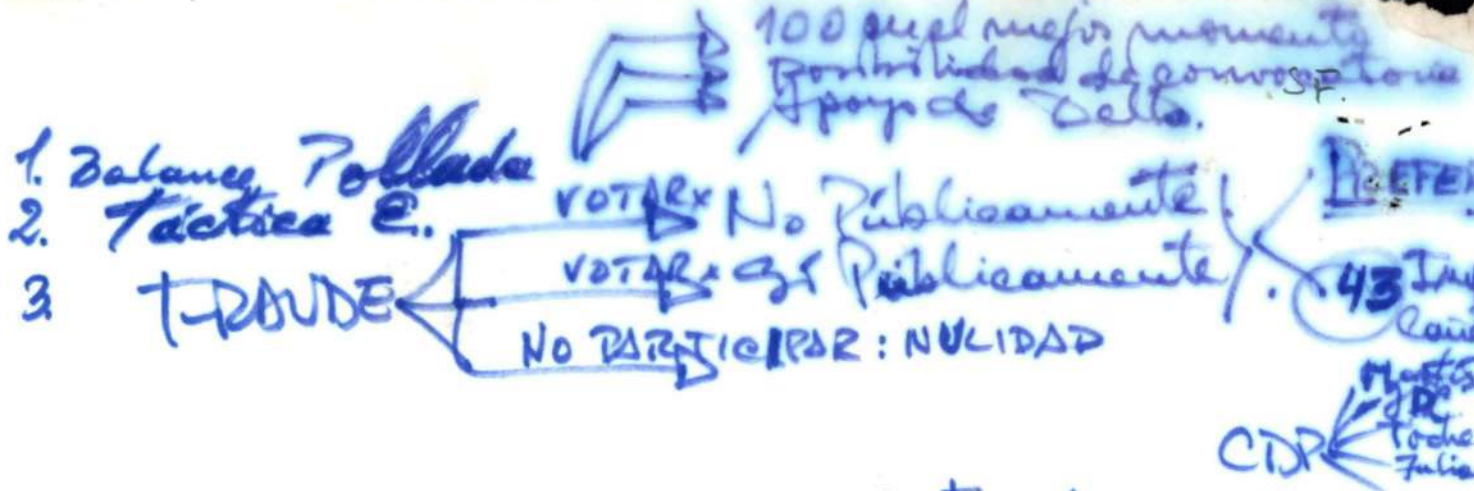 100 en el mejor momento
Posibilidad de convocatoria
S.F.
Apoyo de Delta.
1. Balance Pollada
2. Táctica E.
VOTARx No Públicamente
3. FRAUDE
VOTARx Sí Públicamente
NO PARTICIPAR: NULIDAD
43
CDP